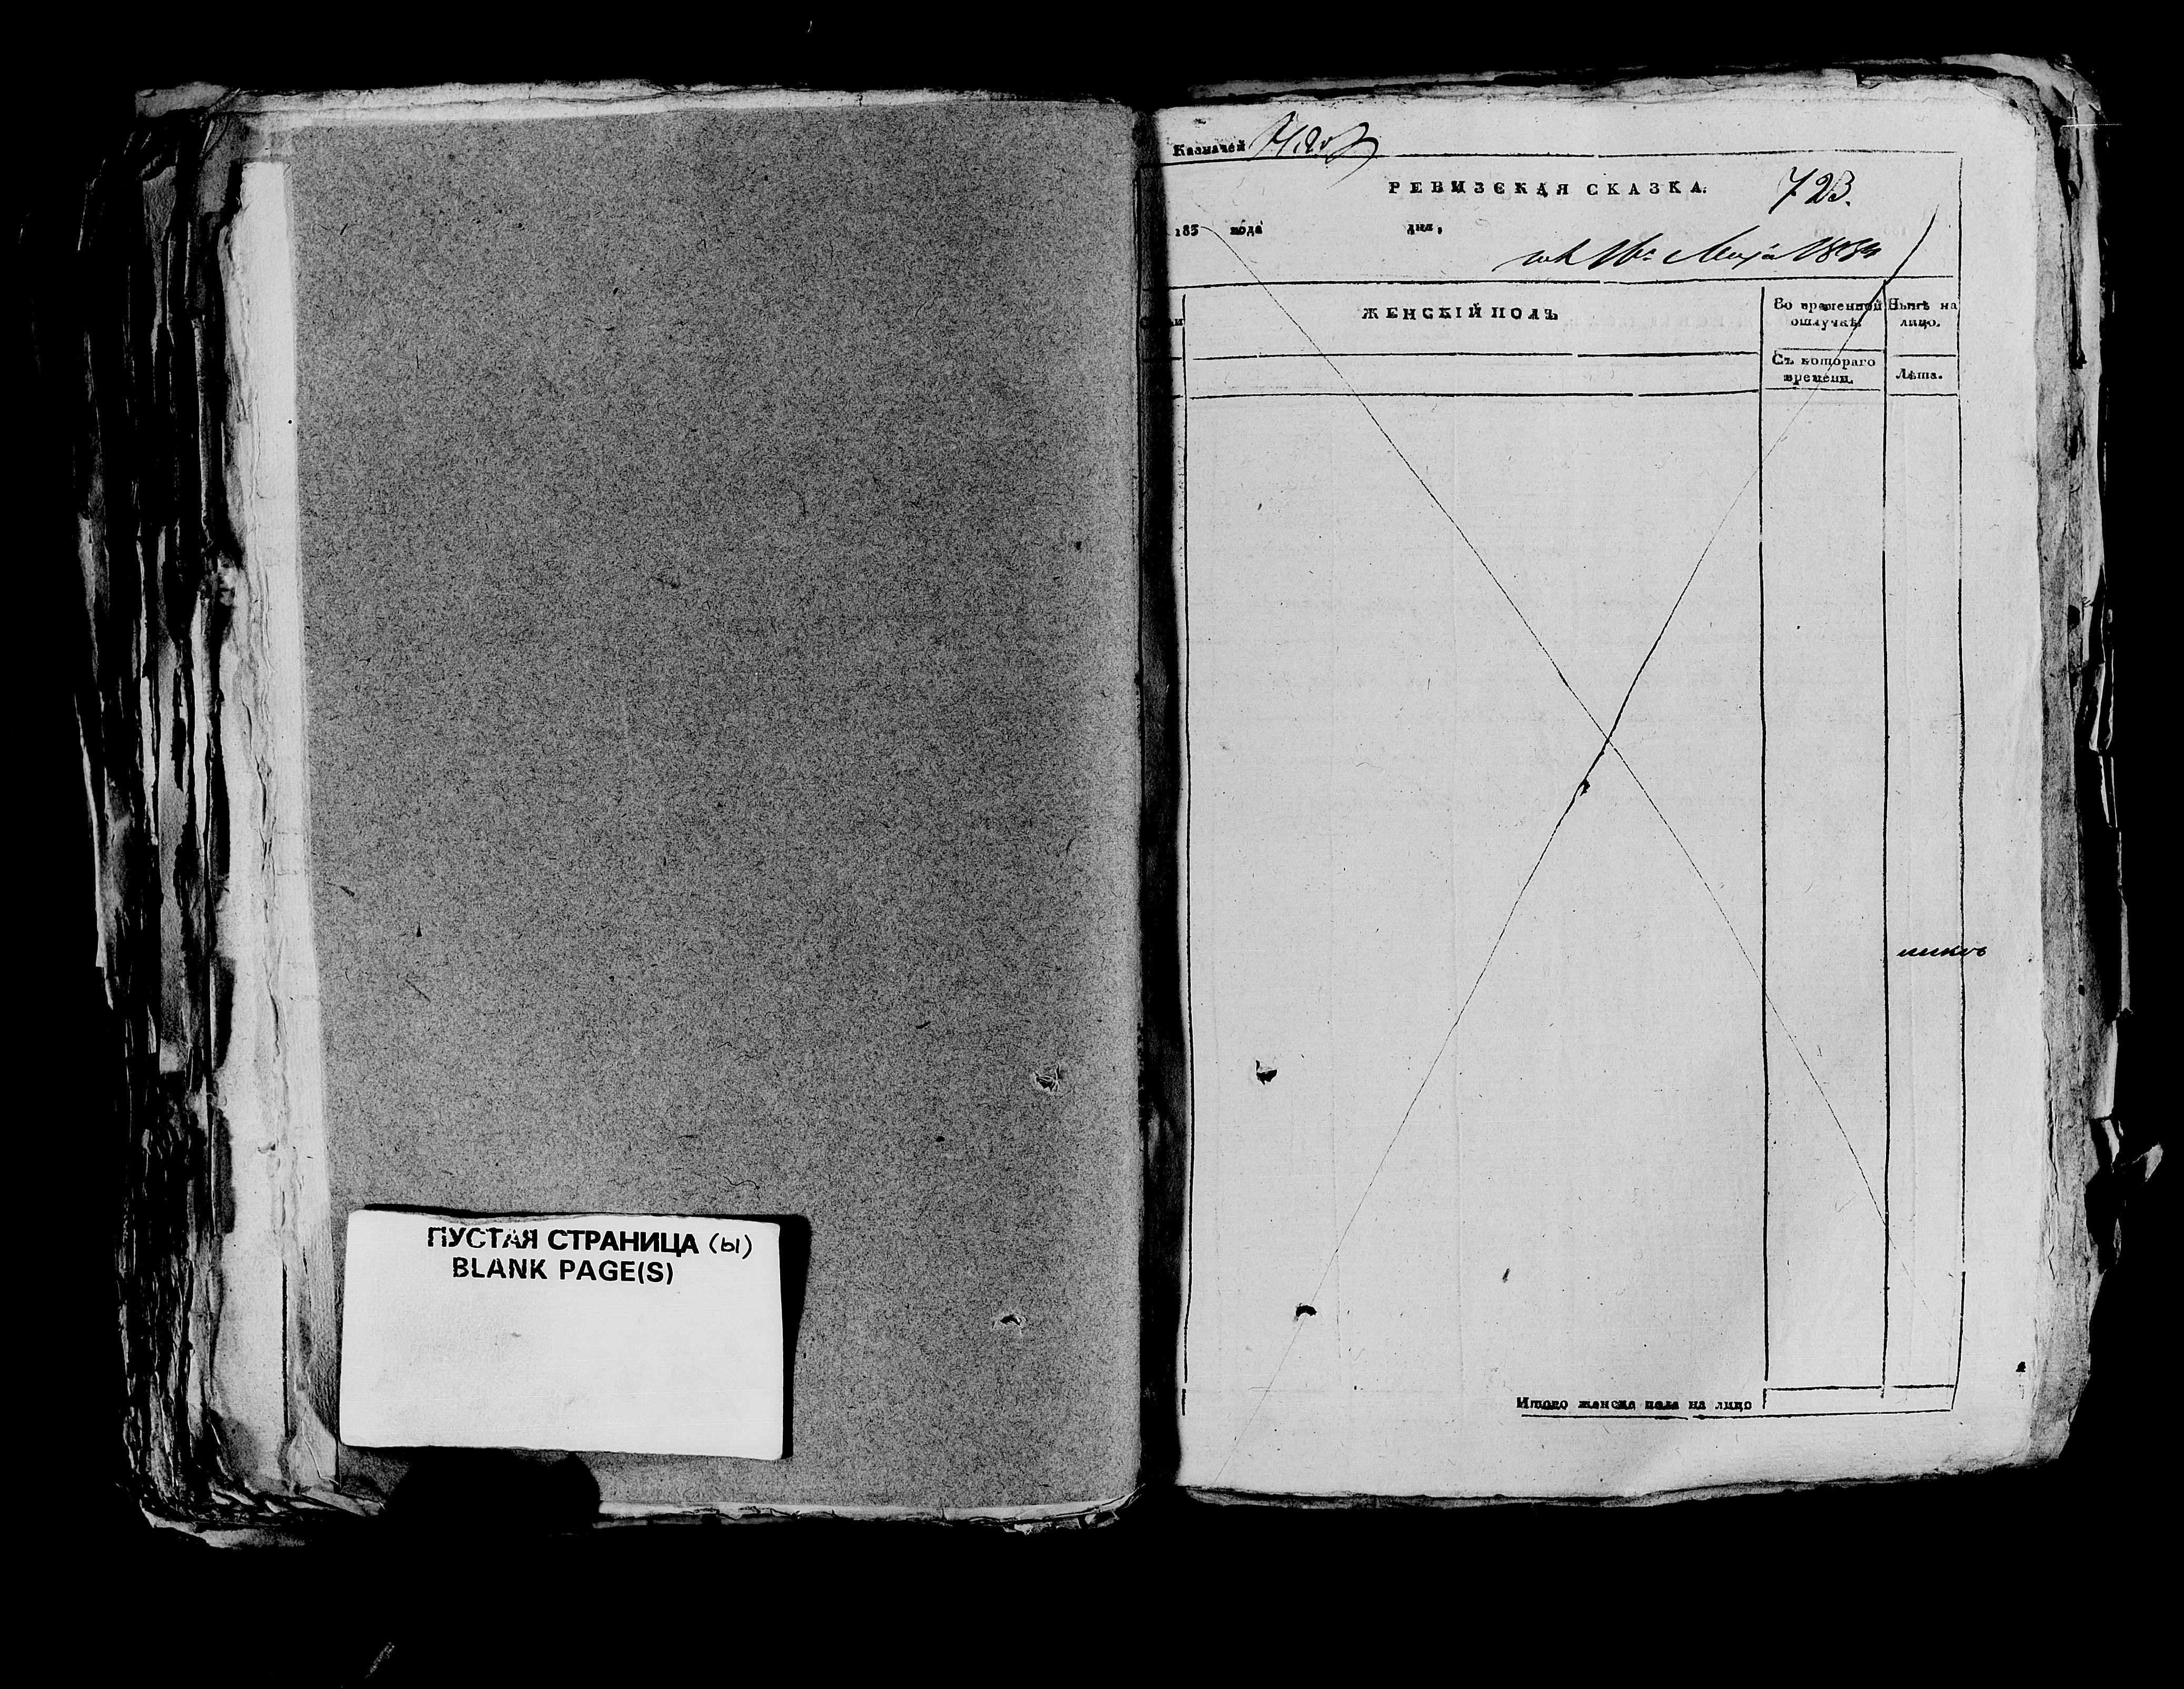 ПУСТАЯ СТРАНИЦА (ы)
BLANK PAGE(S)
Казначей
РЕВИЗСКАЯ СКАЗКА.
723.
183 года дня,
16го Мая 1834
ЖЕНСКІЙ ПОЛЪ
Во временной отлучкѣ.
Нынѣ на лицо.
Съ котораго времени.
Лѣта.
Итого женска пола на лицо